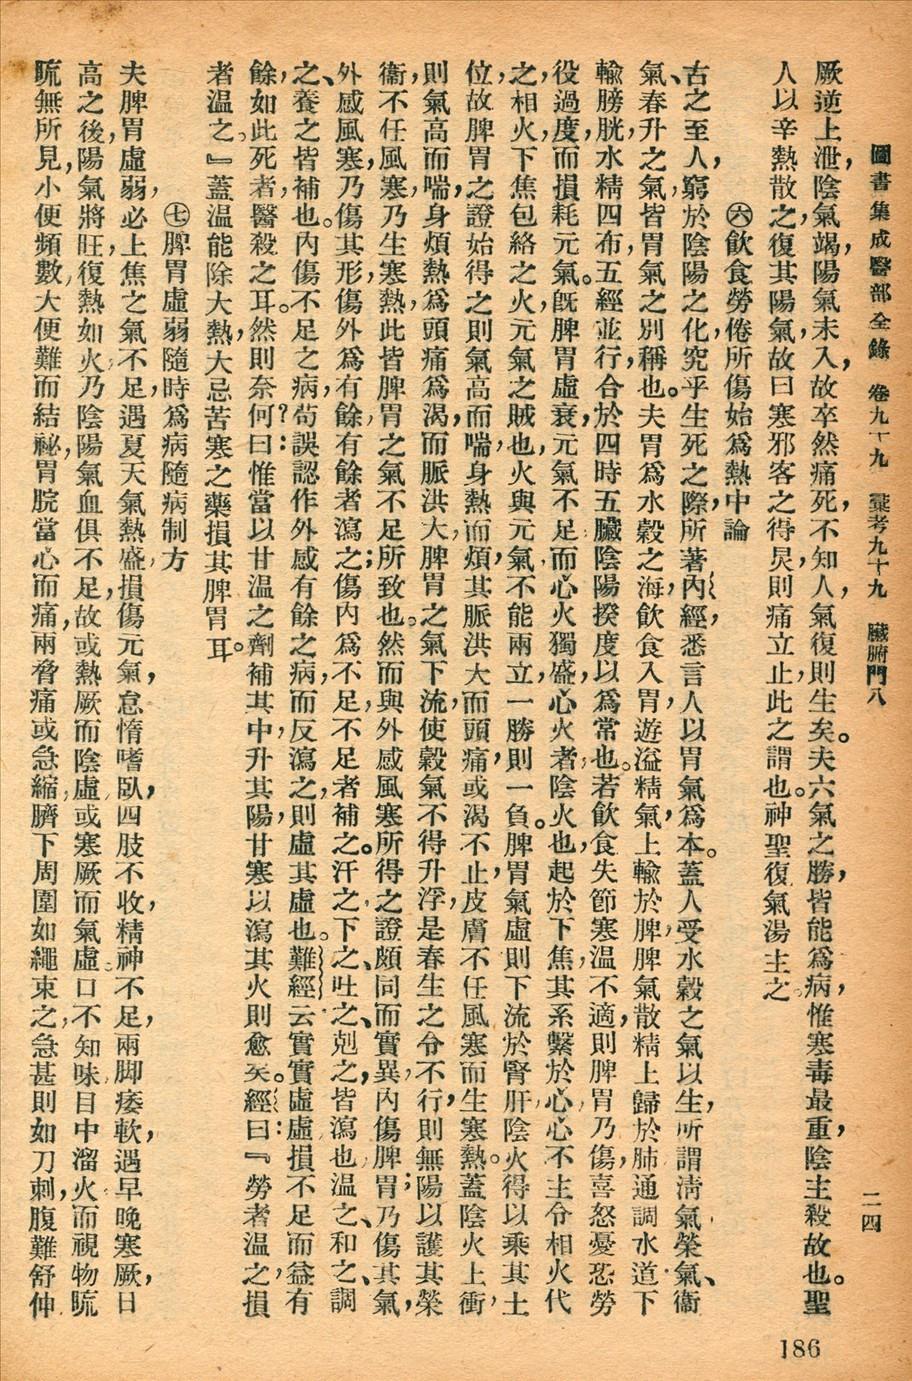 圖書集成醫部全錄　卷九十九　彙考九十九　臟腑門八　二四
厥逆上泄，陰氣竭，陽氣未入，故卒然痛死，不知人，氣復則生矣。夫六氣之勝，皆能爲病，惟寒毒最重，陰主殺故也。聖
人以辛熱散之，復其陽氣，故曰寒邪客之，得炅則痛立止，此之謂也。神聖復氣湯主之。
㊅飲食勞倦所傷始爲熱中論
古之至人，窮於陰陽之化，究乎生死之際，所著內經，悉言人以胃氣爲本。蓋人受水穀之氣以生，所謂淸氣、榮氣、衞
氣、春升之氣，皆胃氣之別稱也。夫胃爲水穀之海，飲食入胃，遊溢精氣，上輸於脾，脾氣散精，上歸於肺，通調水道，下
輸膀胱，水精四布，五經並行，合於四時五臟陰陽，揆度以爲常也。若飲食失節，寒溫不適，則脾胃乃傷，喜怒憂恐，勞
役過度，而損耗元氣。旣脾胃虛衰，元氣不足，而心火獨盛，心火者，陰火也，起於下焦，其系繫於心，心不主令，相火代
之，相火，下焦包絡之火，元氣之賊也，火與元氣不能兩立，一勝則一負。脾胃氣虛，則下流於腎肝，陰火得以乘其土
位，故脾胃之證，始得之則氣高而喘，身熱而煩，其脈洪大而頭痛，或渴不止，皮膚不任風寒，而生寒熱。蓋陰火上衝，
則氣高而喘，身煩熱，爲頭痛，爲渴，而脈洪大，脾胃之氣下流，使穀氣不得升浮，是春生之令不行，則無陽以護其榮
衞，不任風寒，乃生寒熱，此皆脾胃之氣不足所致也。然而與外感風寒所得之證頗同而實異，內傷脾胃，乃傷其氣，
外感風寒，乃傷其形，傷外爲有餘，有餘者瀉之，傷內爲不足，不足者補之。汗之、下之、吐之、剋之，皆瀉也；溫之、和之、調
之、養之，皆補也。內傷不足之病，苟誤認作外感有餘之病，而反瀉之，則虛其虛也。難經云：實實虛虛，損不足而益有
餘，如此死者，醫殺之耳。然則奈何？曰：惟當以甘溫之劑，補其中，升其陽，甘寒以瀉其火則愈矣。經曰：『勞者溫之，損
者溫之。』蓋溫能除大熱，大忌苦寒之藥損其脾胃耳。
㊆脾胃虛弱隨時爲病隨病制方
夫脾胃虛弱，必上焦之氣不足，遇夏天氣熱盛，損傷元氣，怠惰嗜臥，四肢不收，精神不足，兩脚痿軟，遇早晚寒厥，日
高之後，陽氣將旺，復熱如火，乃陰陽氣血俱不足，故或熱厥而陰虛，或寒厥而氣虛。口不知味，目中溜火而視物䀮
䀮無所見，小便頻數，大便難而結祕，胃脘當心而痛，兩脅痛或急縮，臍下周圍如繩束之，急甚則如刀刺，腹難舒伸，
186